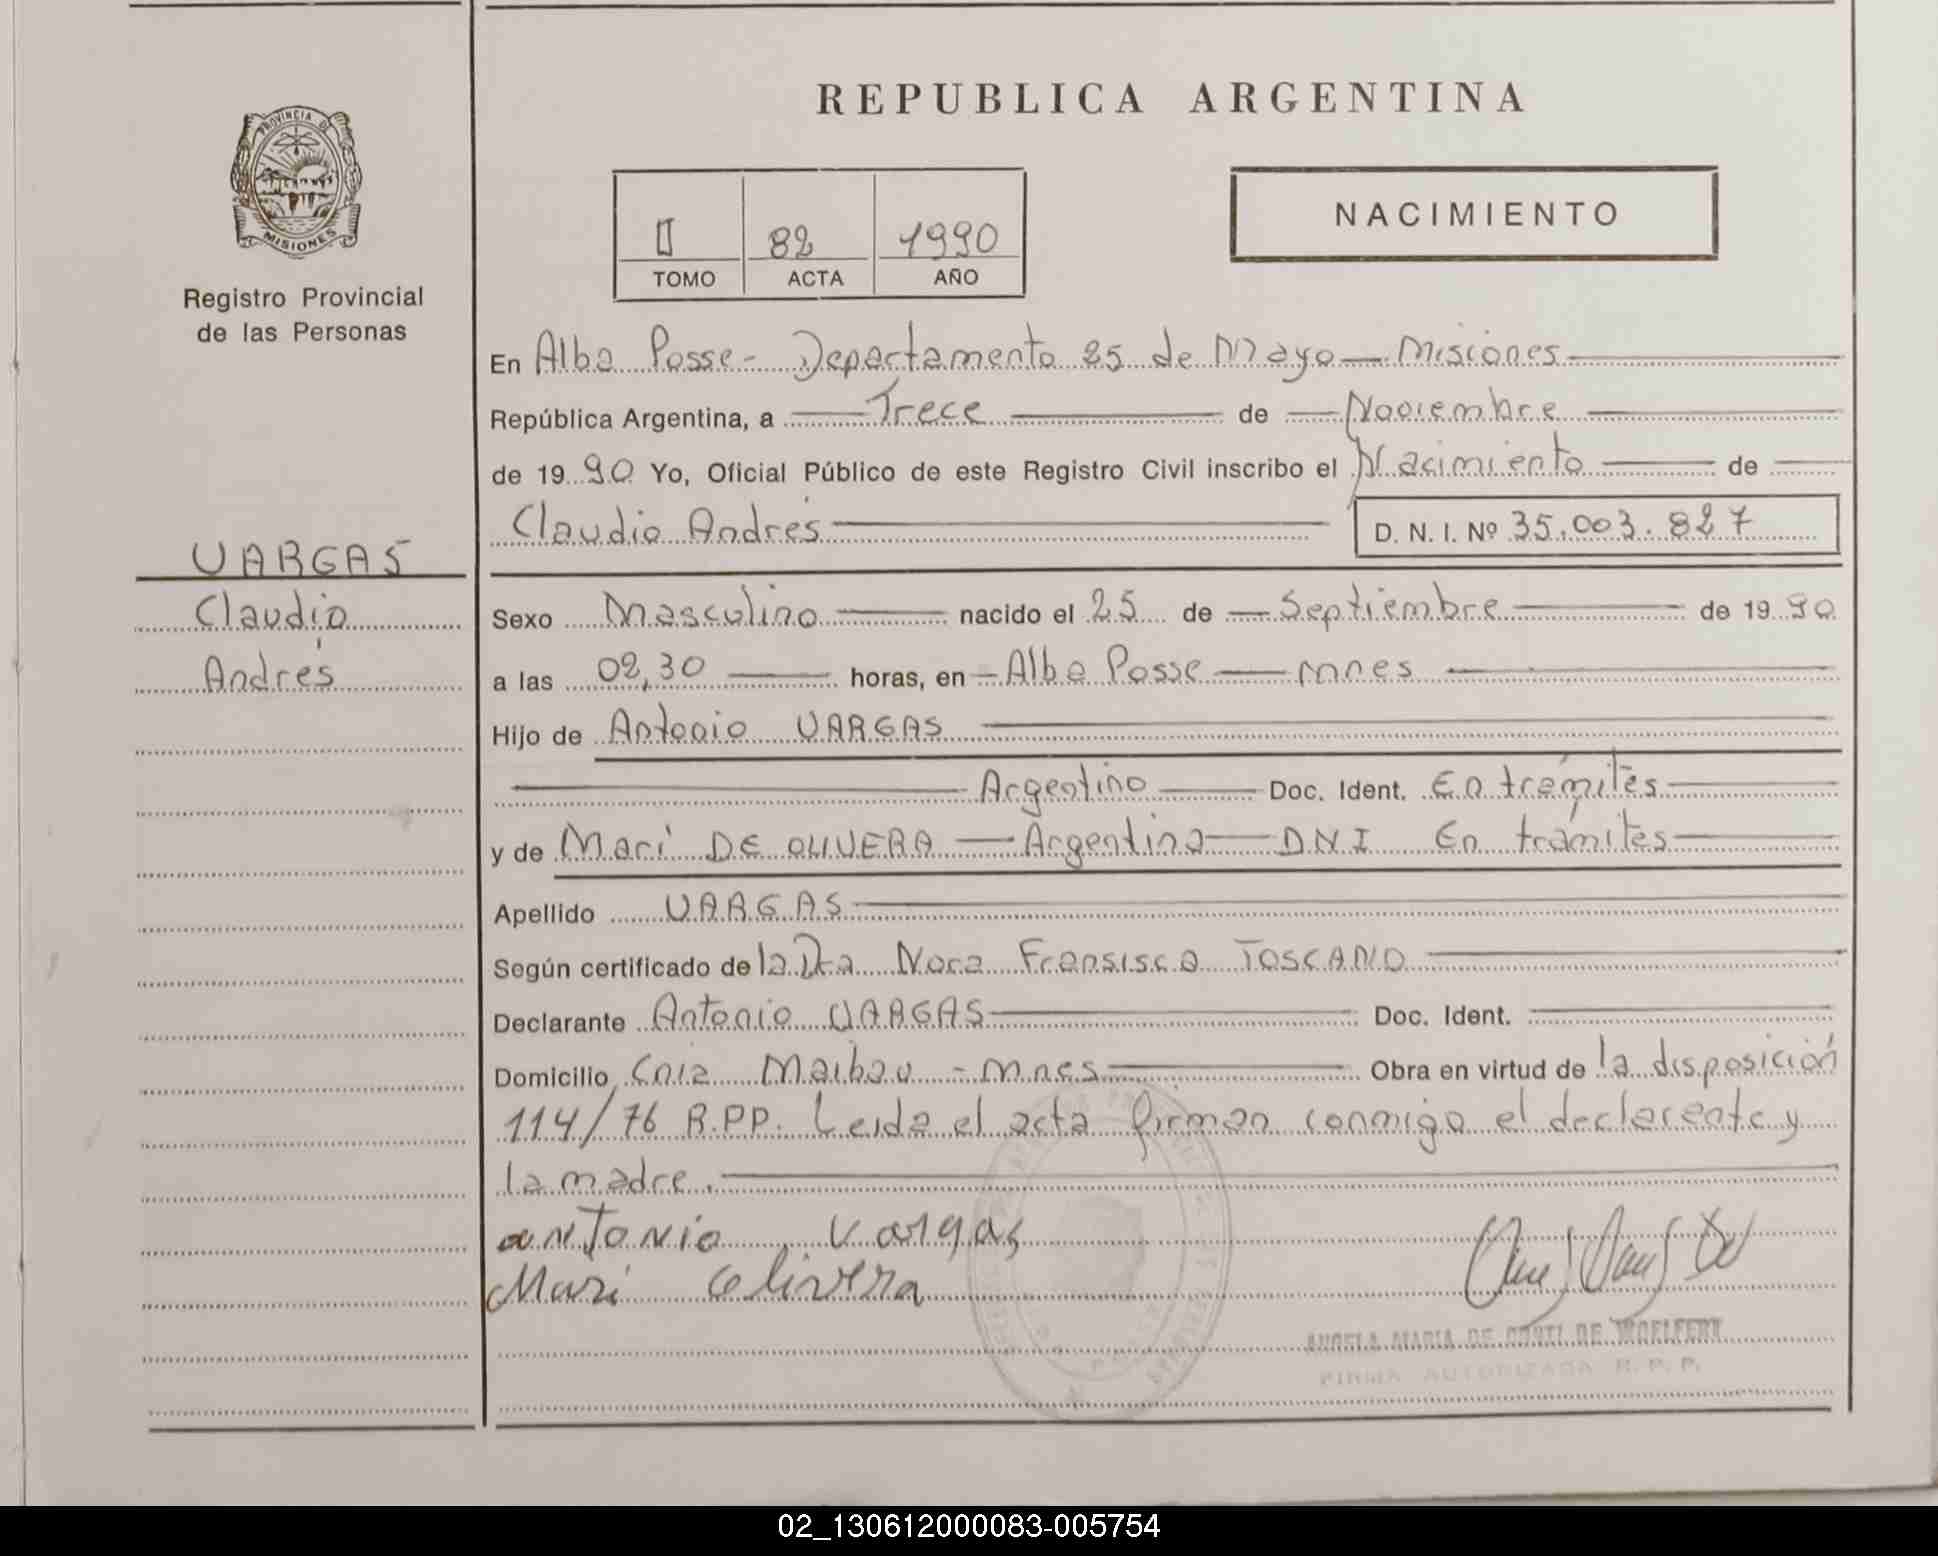 REPUBLICA ARGENTINA
PROVINCIA DE
MISIONES
Registro Provincial
de las Personas
II 82 1990
TOMO ACTA AÑO
NACIMIENTO
En Alba Posse - Departamento 25 de Mayo — Misiones
República Argentina, a Trece de Noviembre
de 1990 Yo, Oficial Público de este Registro Civil inscribo el Nacimiento de
Claudio Andrés D. N. I. Nº 35.003.827
VARGAS
Claudio
Andrés
Sexo Masculino nacido el 25 de Septiembre de 1990
a las 02,30 horas, en Alba Posse — mnes
Hijo de Antonio VARGAS
Argentino Doc. Ident. En trámites
y de Mari DE OLIVERA — Argentina — DNI En trámites
Apellido VARGAS
Según certificado de la Dra Nora Fransisca TOSCANO
Declarante Antonio VARGAS Doc. Ident.
Domicilio Cnia Maibau - mnes Obra en virtud de la disposición
114/76 R.PP. Leida el acta firman conmigo el declarante y
la madre.
antonio vargas
Mari Olivera
ANGELA MARIA DE CONTI DE
FIRMA AUTORIZADA R. P. P.
02_130612000083-005754